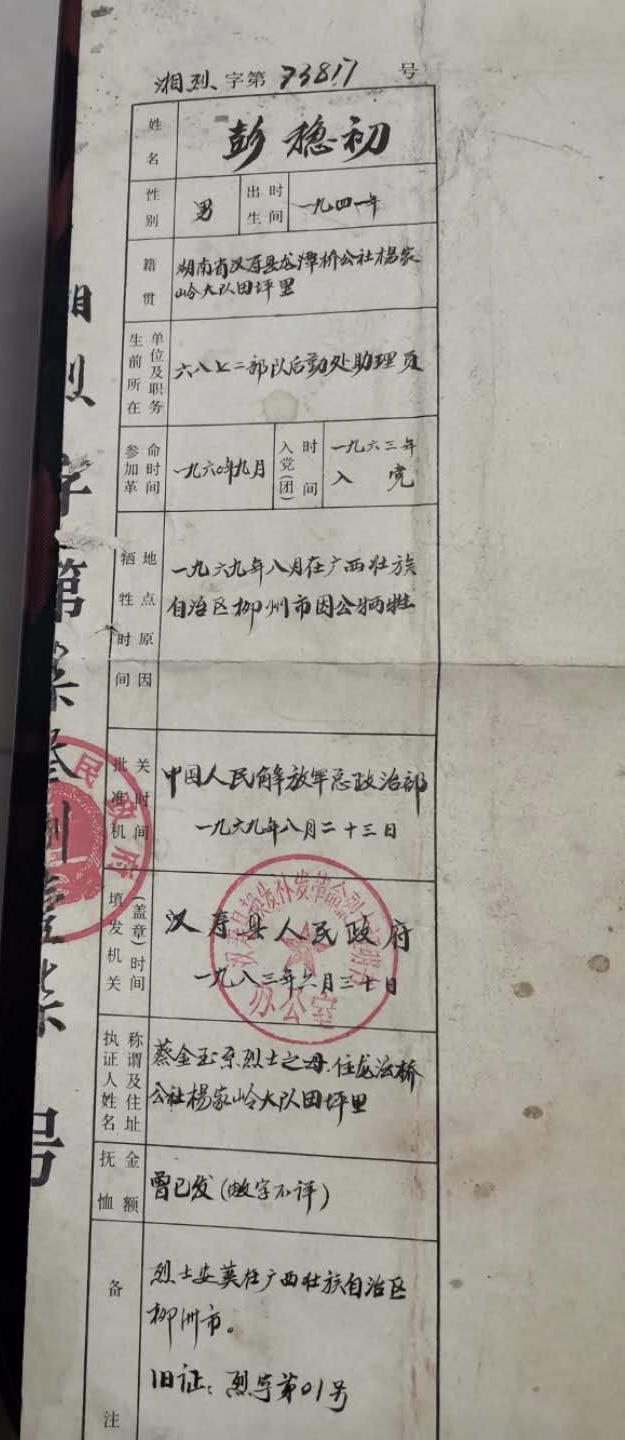 湘烈 字第 73817 号
姓名 彭稳初
性别 男 出生时间 一九四一年
籍贯 湖南省汉寿县龙潭桥公社杨家
岭大队田坪里
生前所在单位及职务 六八七二部队后勤处助理员
参加革命时间 一九六〇年九月 入党(团)时间 一九六三年
入党
牺牲时间地点原因 一九六九年八月在广西壮族
自治区柳州市因公牺牲
批准机关时间 中国人民解放军总政治部
一九六九年八月二十三日
填发机关(盖章)时间 汉寿县人民政府
一九八三年六月三十日
办公室
执证人姓名称谓及住址 蔡金玉系烈士之母.住龙法桥
公社杨家岭大队田坪里
抚恤金额 曾已发(数字不详)
备注 烈士安葬在广西壮族自治区
柳州市。
旧证:烈字第01号
湘烈字第
号
民政府